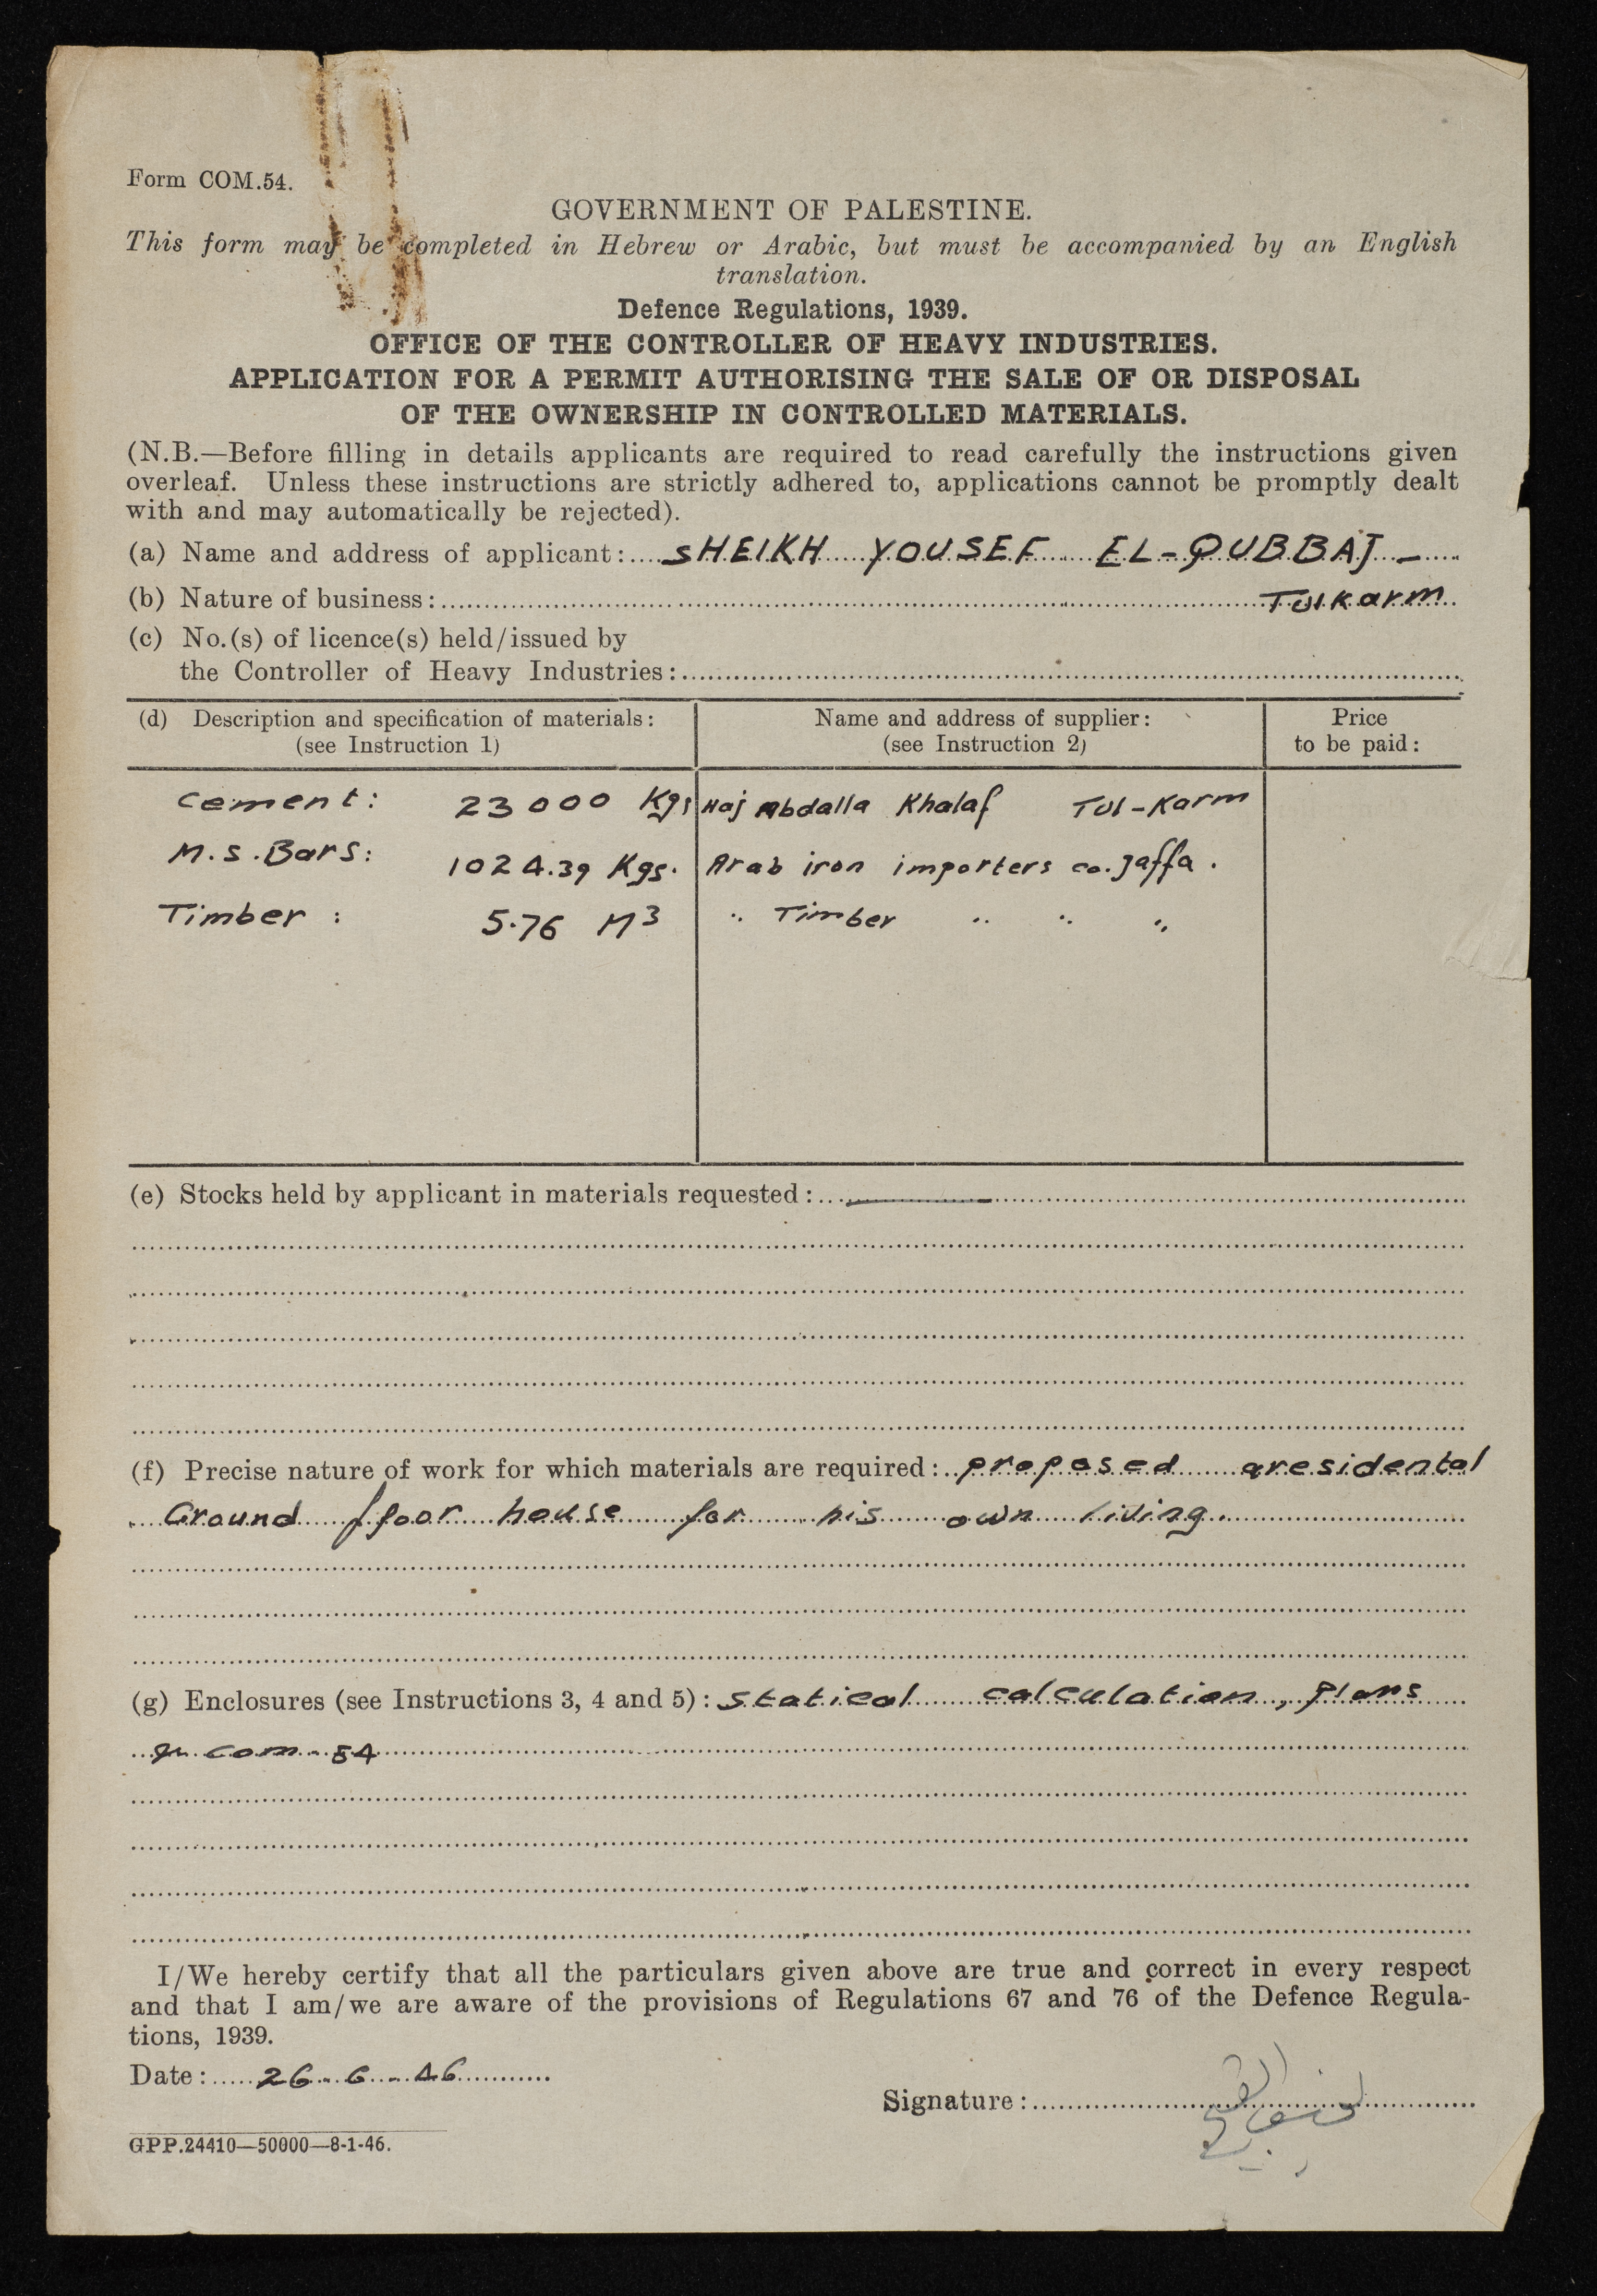 Form COM.54.
GOVERNMENT OF PALESTINE.
This form may be completed in Hebrew or Arabic, but must be accompanied by an English
translation.
Defence Regulations, 1939.
OFFICE OF THE CONTROLLER OF HEAVY INDUSTRIES.
APPLICATION FOR A PERMIT AUTHORISING THE SALE OF OR DISPOSAL
OF THE OWNERSHIP IN CONTROLLED MATERIALS.
(N.B.—Before filling in details applicants are required to read carefully the instructions given
overleaf. Unless these instructions are strictly adhered to, applications cannot be promptly dealt
with and may automatically be rejected).
(a) Name and address of applicant: SHEIKH YOUSEF EL-QUBBAJ -
(b) Nature of business: Tulkarm
(c) No.(s) of licence(s) held/issued by
the Controller of Heavy Industries:
(d) Description and specification of materials: Name and address of supplier: Price
(see Instruction 1) (see Instruction 2) to be paid:
cement: 23000 Kgs Haj Abdalla Khalaf Tul-Karm
M.S.Bars: 1024.39 Kgs. Arab iron importers co. Jaffa.
Timber : 5.76 M3 " Timber " " "
(e) Stocks held by applicant in materials requested: —
(f) Precise nature of work for which materials are required: proposed aresidental
Ground floor house for his own living.
(g) Enclosures (see Instructions 3, 4 and 5): statical calculation, Plans
com-54
I/We hereby certify that all the particulars given above are true and correct in every respect
and that I am/we are aware of the provisions of Regulations 67 and 76 of the Defence Regula-
tions, 1939.
Date: 26-6-46
Signature:
GPP.24410—50000—8-1-46.